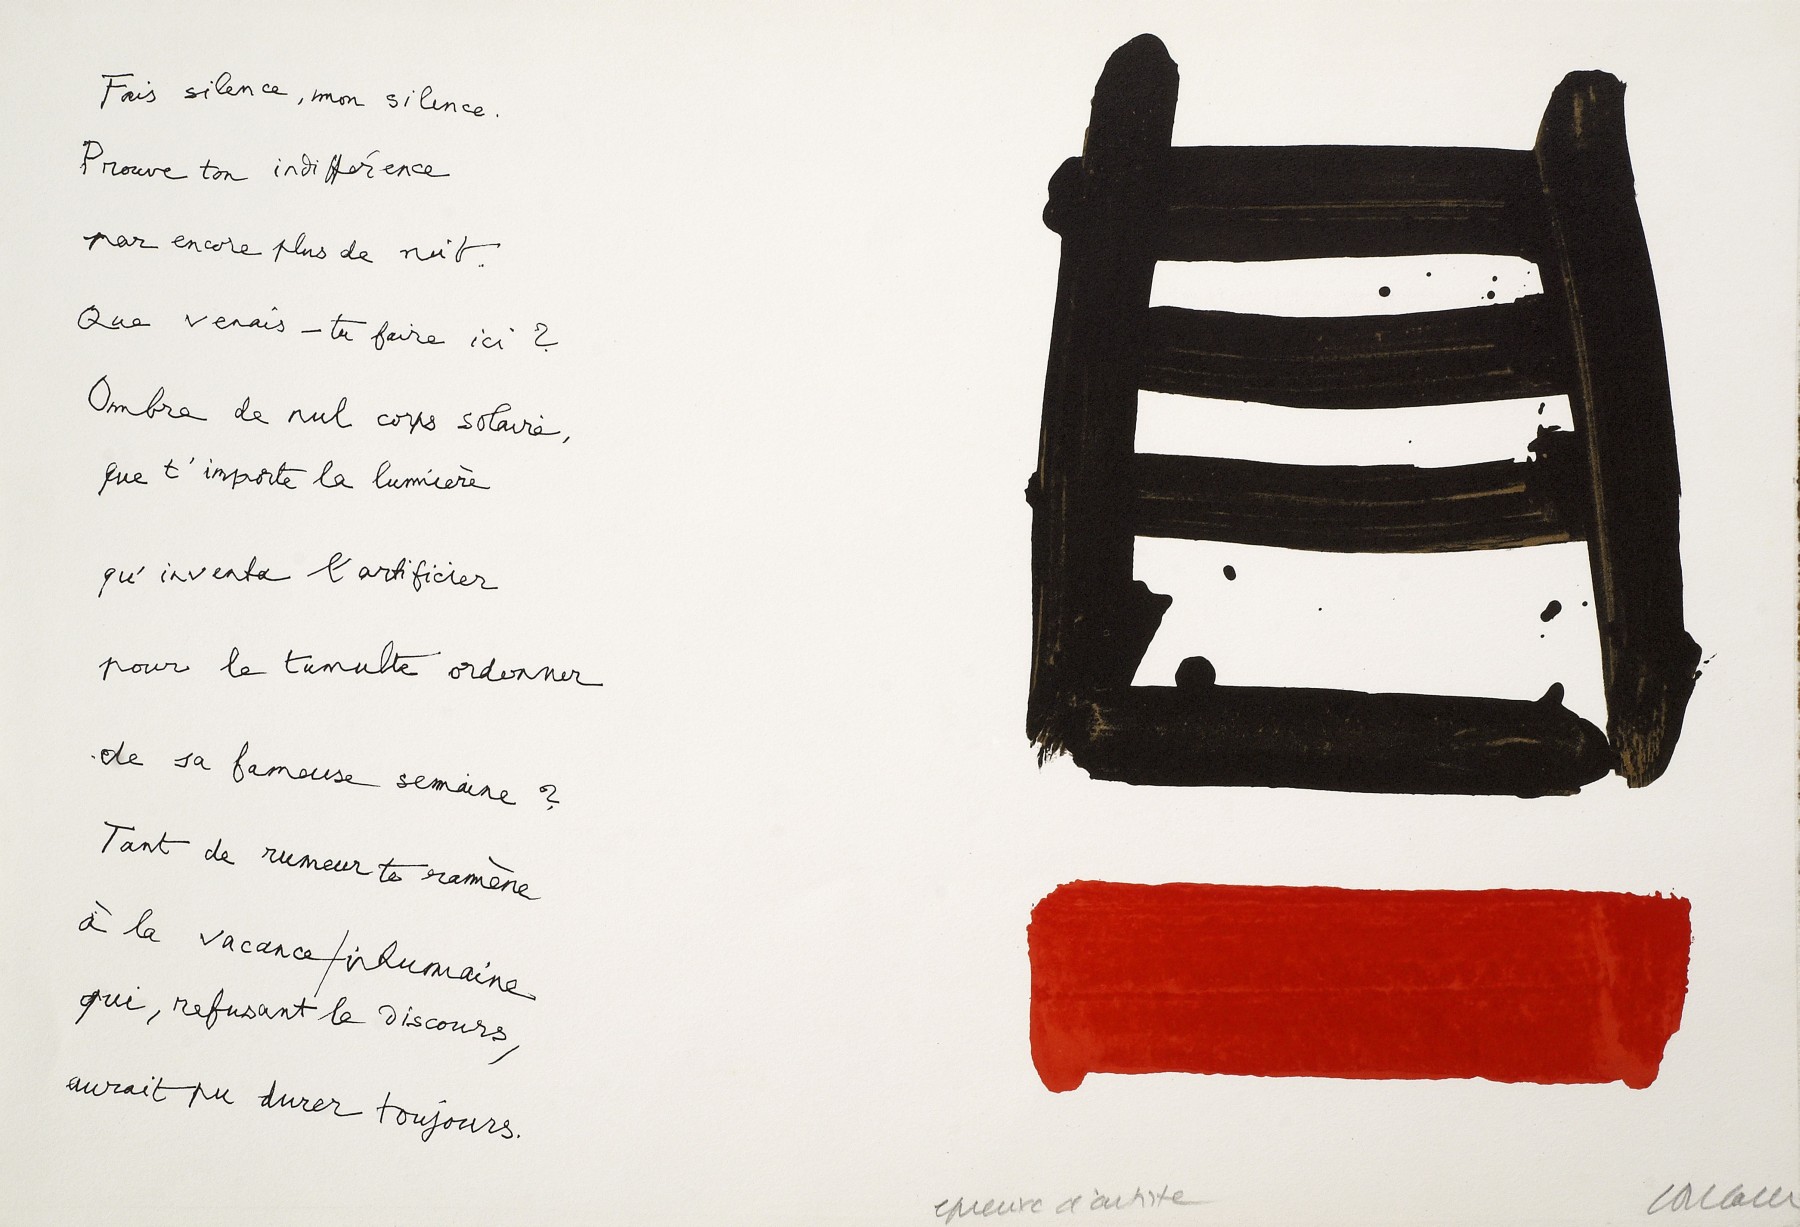 Fais silence, mon silence.
Prouve ton indifférence
par encore plus de nuit.
Que venais-tu faire ici ?
Ombre de nul corps solaire,
que t'importe la lumière
qu'inventa l'artificier
pour le tumulte ordonner
de sa fameuse semaine ?
Tant de rumeur te ramène
à la vacance/inhumaine
qui, refusant le discours,
aurait pu durer toujours.
épreuve d'artiste